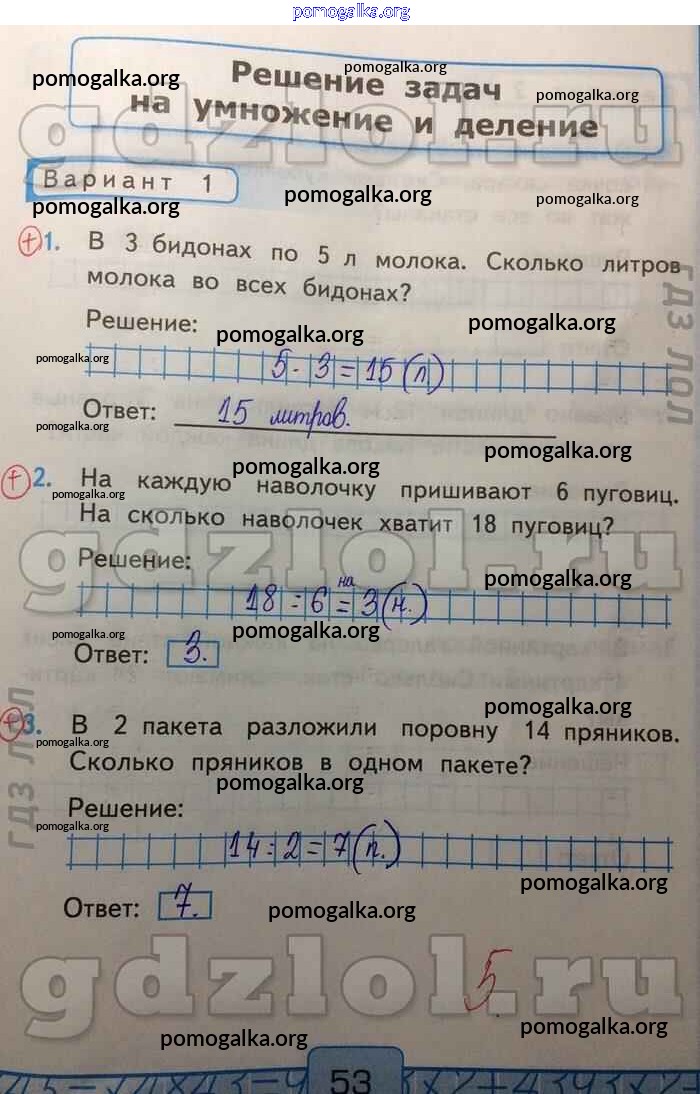 pomogalka.org
Решение задач
pomogalka.org pomogalka.org
на умножение и деление
pomogalka.org
gdzlol.ru
Вариант 1
pomogalka.org
pomogalka.org
+ 1. В 3 бидонах по 5 л молока. Сколько литров
молока во всех бидонах?
Решение:
pomogalka.org pomogalka.org
гдз лол
pomogalka.org
5 · 3 = 15 (л)
Ответ: 15 литров.
pomogalka.org
pomogalka.org
pomogalka.org
+ 2. На каждую наволочку пришивают 6 пуговиц.
pomogalka.org
На сколько наволочек хватит 18 пуговиц?
gdzlol.ru
Решение:
pomogalka.org
на
18 : 6 = 3 (н.)
pomogalka.org pomogalka.org
Ответ: 3.
гдз лол
pomogalka.org
+ 3. В 2 пакета разложили поровну 14 пряников.
pomogalka.org
Сколько пряников в одном пакете?
pomogalka.org
Решение:
pomogalka.org
14 : 2 = 7 (п.)
pomogalka.org
Ответ: 7.
pomogalka.org
gdzlol.ru
5.
pomogalka.org
pomogalka.org
53